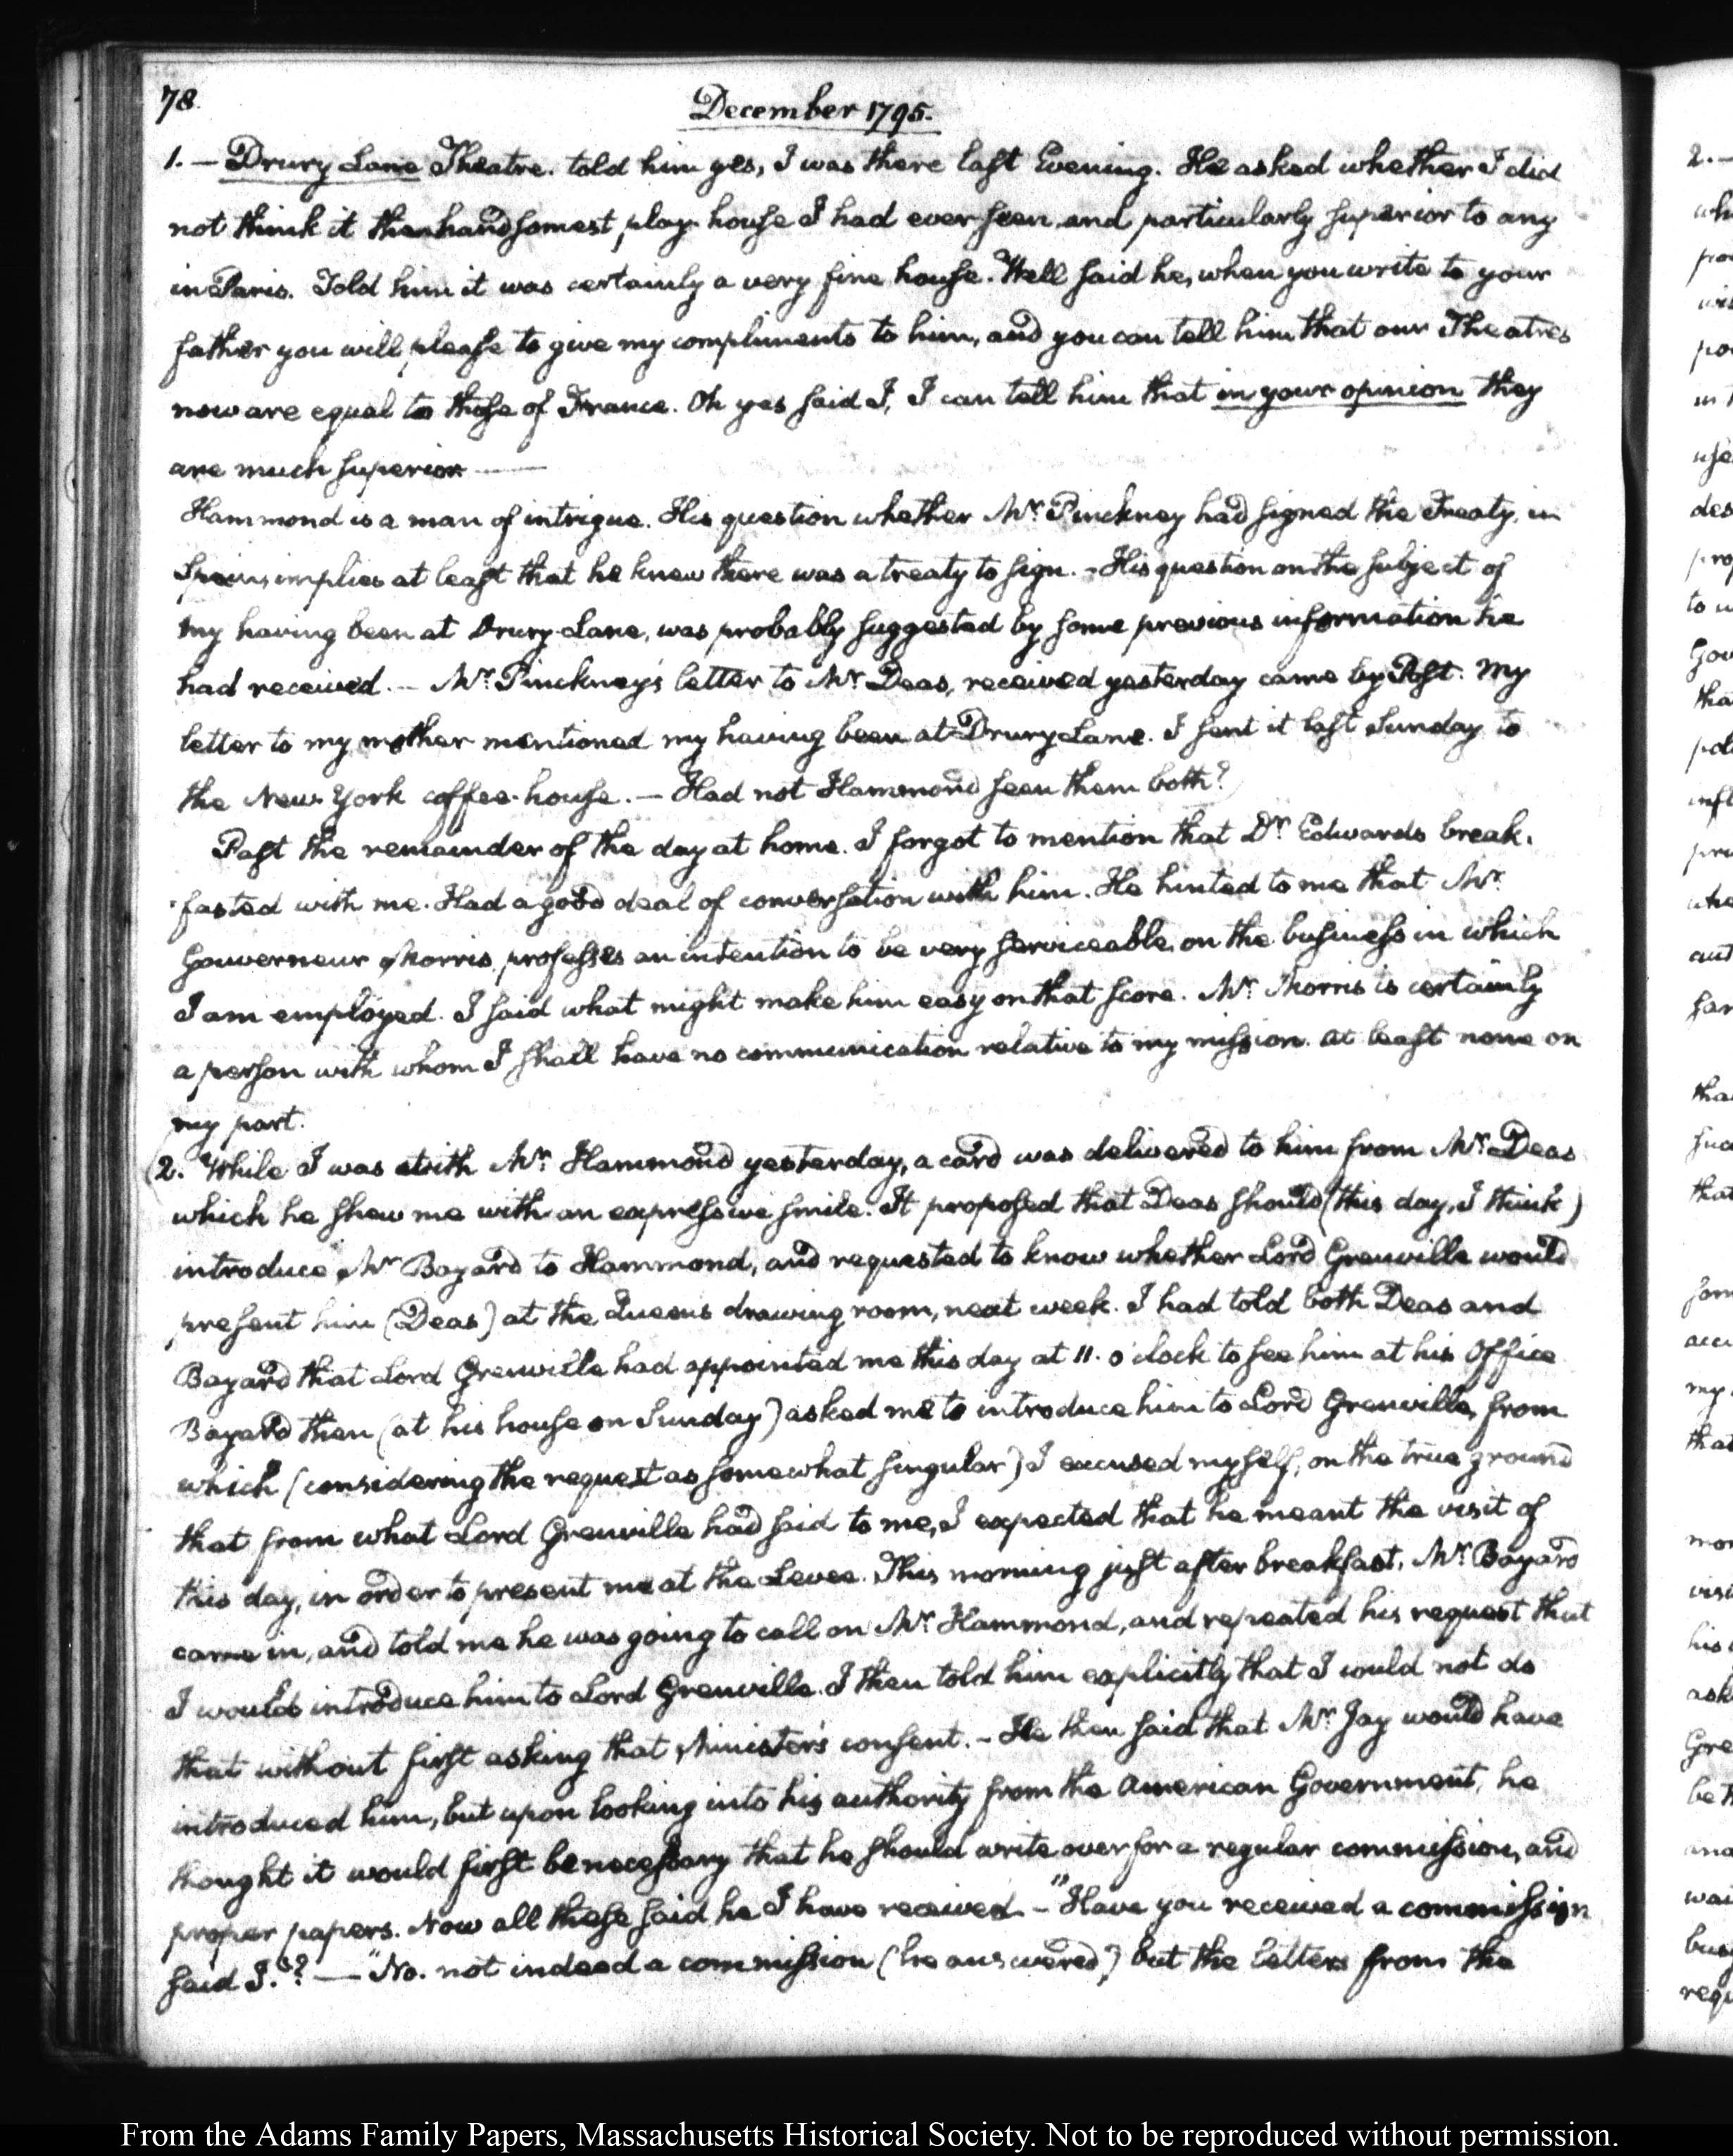 78.
December 1795.
1. — Drury Lane Theatre. told him yes, I was there last Evening. He asked whether I did
not think it the handsomest play-house I had ever seen and particularly superior to any
in Paris. Told him it was certainly a very fine house. Well said he, when you write to your
father you will please to give my compliments to him, and you can tell him that our Theatres
now are equal to those of France. Oh yes said I, I can tell him that in your opinion they
are much superior —
Hammond is a man of intrigue. His question whether Mr. Pinckney had signed the Treaty in
Spain implies at least that he knew there was a treaty to sign. - His question on the subject of
my having been at Drury-Lane, was probably suggested by some previous information he
had received. — Mr. Pinckney's letter to Mr. Deas, received yesterday came by Post. My
letter to my mother mentioned my having been at Drury Lane. I sent it last Sunday to
the New-York coffee-house. — Had not Hammond seen them both?
Past the remainder of the day at home. I forgot to mention that Dr. Edwards break-
-fasted with me. Had a good deal of conversation with him. He hinted to me that Mr.
Gouverneur Morris, professes an intention to be very serviceable, on the business in which
I am employed. I said what might make him easy on that score. Mr. Morris is certainly
a person with whom I shall have no communication relative to my mission. at least none on
my part.
2. While I was with Mr. Hammond yesterday, a card was delivered to him from Mr. Deas
which he shew me with an expressive smile. It proposed that Deas should (this day, I think)
introduce Mr. Bayard to Hammond, and requested to know whether Lord Grenville would
present him (Deas) at the Queens drawing room, next week. I had told both Deas and
Bayard that Lord Grenville had appointed me this day at 11. o'clock to see him at his Office
Bayard then (at his house on Sunday) asked me to introduce him to Lord Grenville, from
which (considering the request as somewhat singular) I excused myself, on the true ground
that from what Lord Grenville had said to me, I expected that he meant the visit of
this day, in order to present me at the Levee. This morning just after breakfast, Mr. Bayard
came in, and told me he was going to call on Mr. Hammond, and repeated his request that
I would introduce him to Lord Grenville. I then told him explicitly that I would not do
that without first asking that Minister's consent. - He then said that Mr. Jay would have
introduced him, but upon looking into his authority from the American Government, he
thought it would first be necessary that he should write over for a regular commission, and
proper papers. Now all these said he I have received. - "Have you received a commission
said I."? — "No. not indeed a commission (he answered) but the letters from the
From the Adams Family Papers, Massachusetts Historical Society. Not to be reproduced without permission.